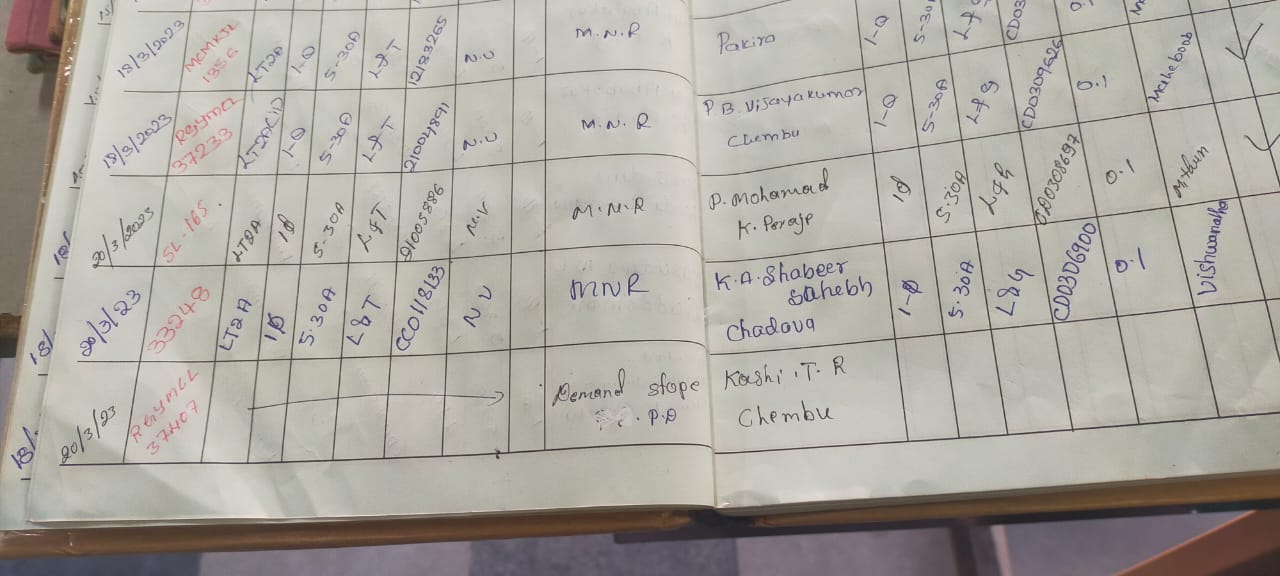 18/3/2023 MCMKSL 1356 LT2A 1-Φ 5-30A L&T 12183265 N.V M.N.R Pakira 1-Φ 5-30A
18/3/2023 RGYMCL 37233 LT2A(i) 1-Φ 5-30A L&T 21004891 N.V M.N.R P B Vijayakumar Chembu 1-Φ 5-30A L&G CD0309626 0.1 Maheboob
20/3/2023 SL-165 LT2A 1Φ 5-30A L&T 21005886 N.V M.N.R P. Mohamad K. Peraje 1Φ 5-30A CD0308697 0.1 Mithun
20/3/23 33248 LT2A 1Φ 5-30A L&T CC0118133 N V MNR K.A. Shabeer Sahebh Chadava 1-Φ 5-30A L&G CD0306900 0.1 Vishwanatha
20/3/23 RGYMCL 37407 Demand stope P.D Kashi .T. R Chembu
18/